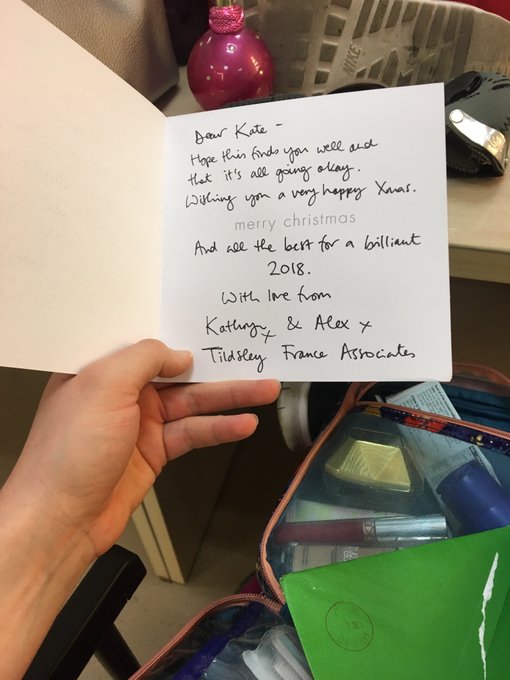 NIKE
Dear Kate -
Hope this finds you well and
that it's all going okay.
Wishing you a very happy Xmas.
merry christmas
And all the best for a brilliant
2018.
With love from
Kathryn x & Alex x
Tildsley France Associates